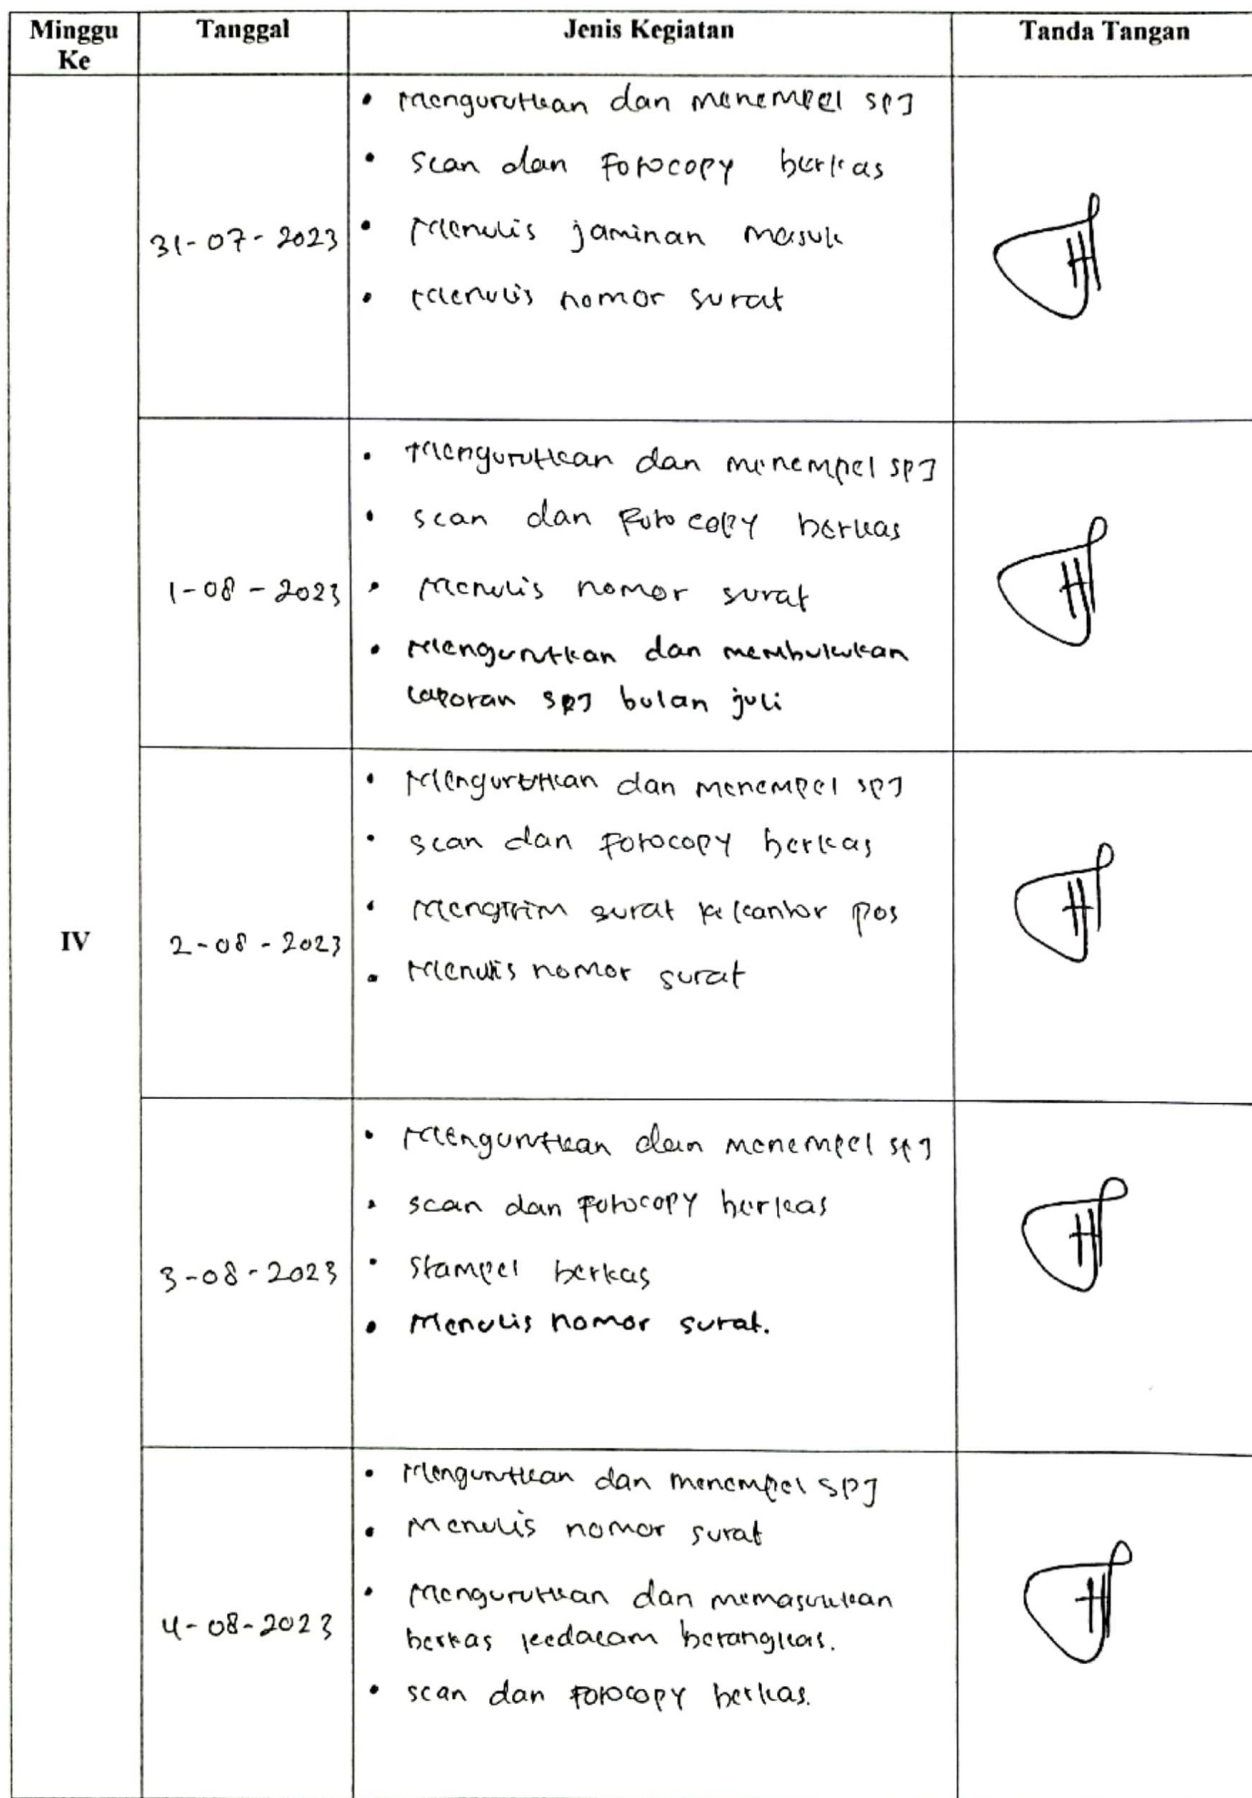 Minggu Ke
Tanggal
Jenis Kegiatan
Tanda Tangan
IV
31-07-2023
• Mengurutkan dan menempel SPJ
• Scan dan Fotocopy berkas
• Menulis jaminan masuk
• Menulis nomor surat
1-08-2023
• Mengurutkan dan menempel SPJ
• scan dan Fotocopy berkas
• Menulis nomor surat
• Mengurutkan dan membukukan
laporan SPJ bulan juli
2-08-2023
• Mengurutkan dan menempel SPJ
• scan dan Fotocopy berkas
• Mengirim surat ke kantor pos
• Menulis nomor surat
3-08-2023
• Mengurutkan dan menempel SPJ
• scan dan Fotocopy berkas
• Stampel berkas
• Menulis nomor surat.
4-08-2023
• Mengurutkan dan menempel SPJ
• Menulis nomor surat
• Mengurutkan dan memasukkan
berkas kedalam berangkas.
• scan dan Fotocopy berkas.